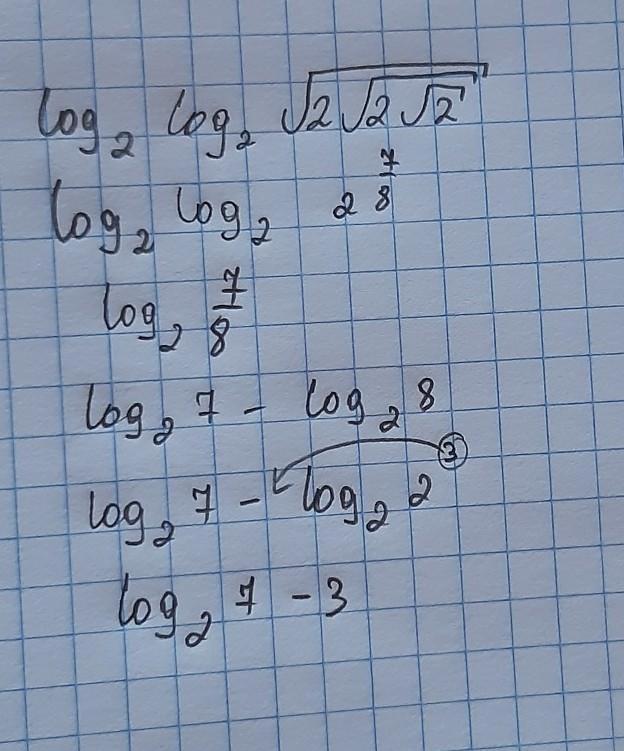 log₂ log₂ √(2√(2√2))
log₂ log₂ 2^(7/8)
log₂ 7/8
log₂ 7 - log₂ 8
log₂ 7 - log₂ 2^③
log₂ 7 - 3